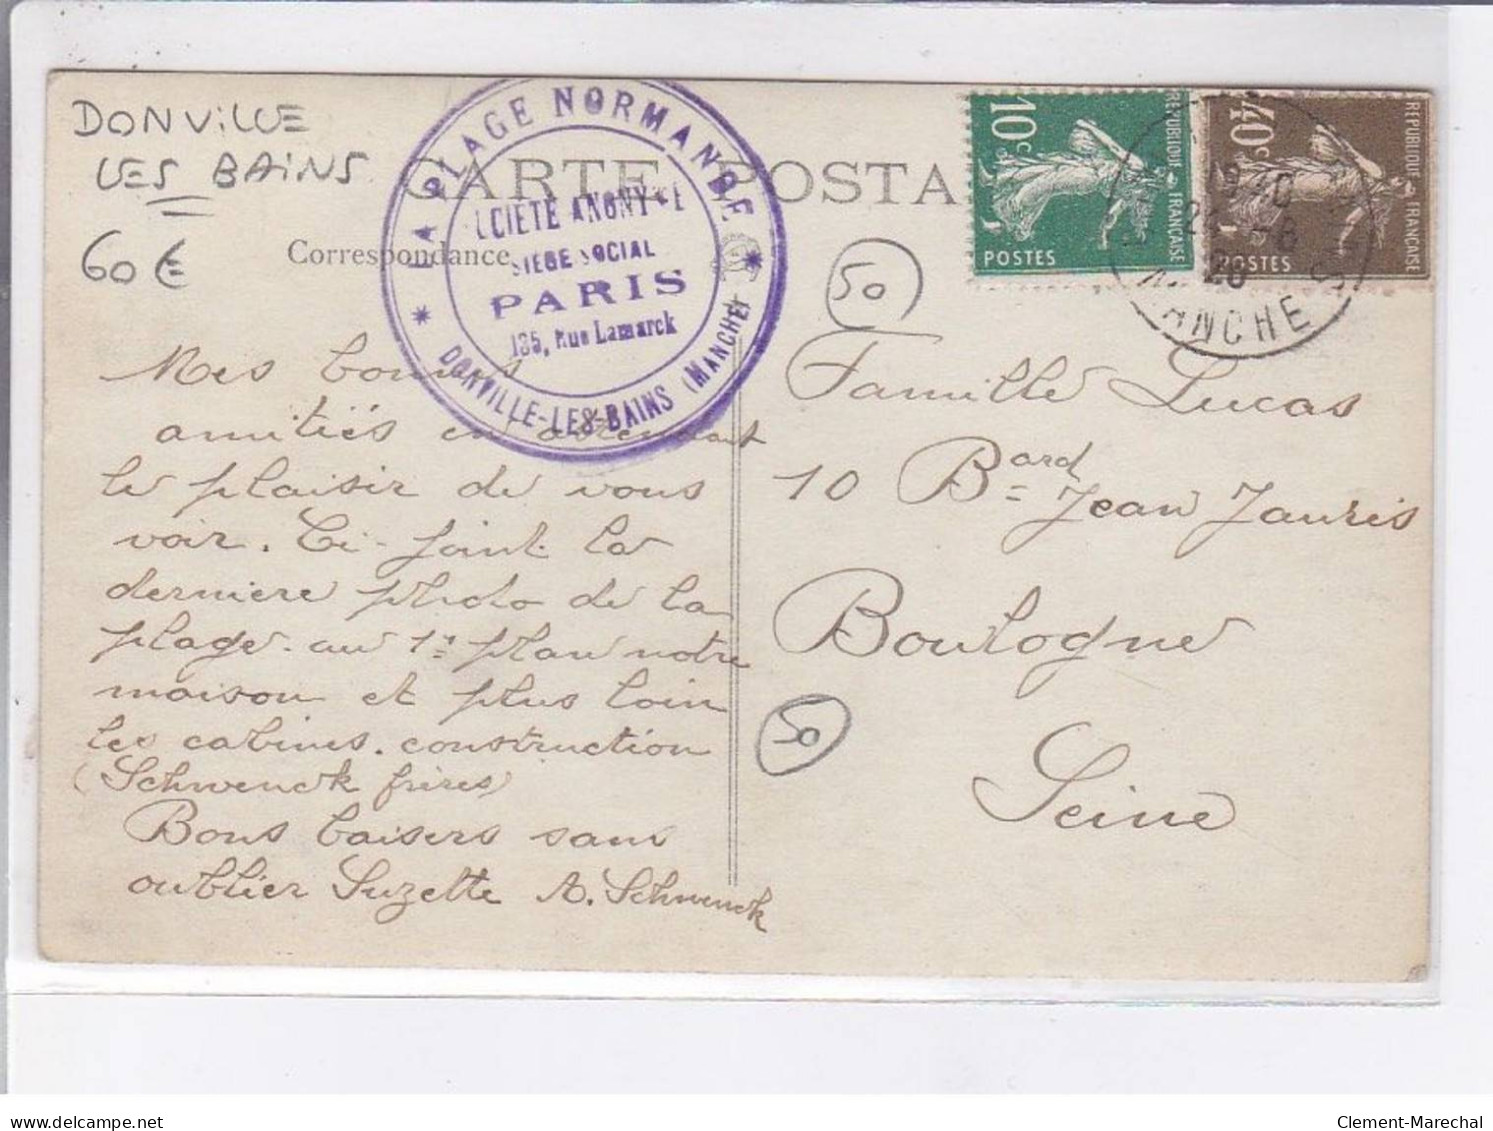 DONVILLE
LES BAINS
60 €
CARTE POSTA
Correspondance
LA PLAGE NORMANDE
DONVILLE-LES-BAINS (MANCHE)
OCIÉTÉ ANONYME
SIEGE SOCIAL
PARIS
135, Rue Lamarck
10c
REPUBLIQUE FRANÇAISE
POSTES
40c
REPUBLIQUE FRANÇAISE
POSTES
19 40
26
MANCHE
50
Mes bonnes
amitiés en attendant
le plaisir de vous
voir. Ci-joint la
derniere photo de la
plage. au 1er plan notre
maison et plus loin
les cabines. construction
(Schwenck frères)
Bons baisers sans
oublier Suzette A. Schwenck
Famille Lucas
10 Bard Jean Jaurès
Boulogne
Seine
50
Clement-Marechal